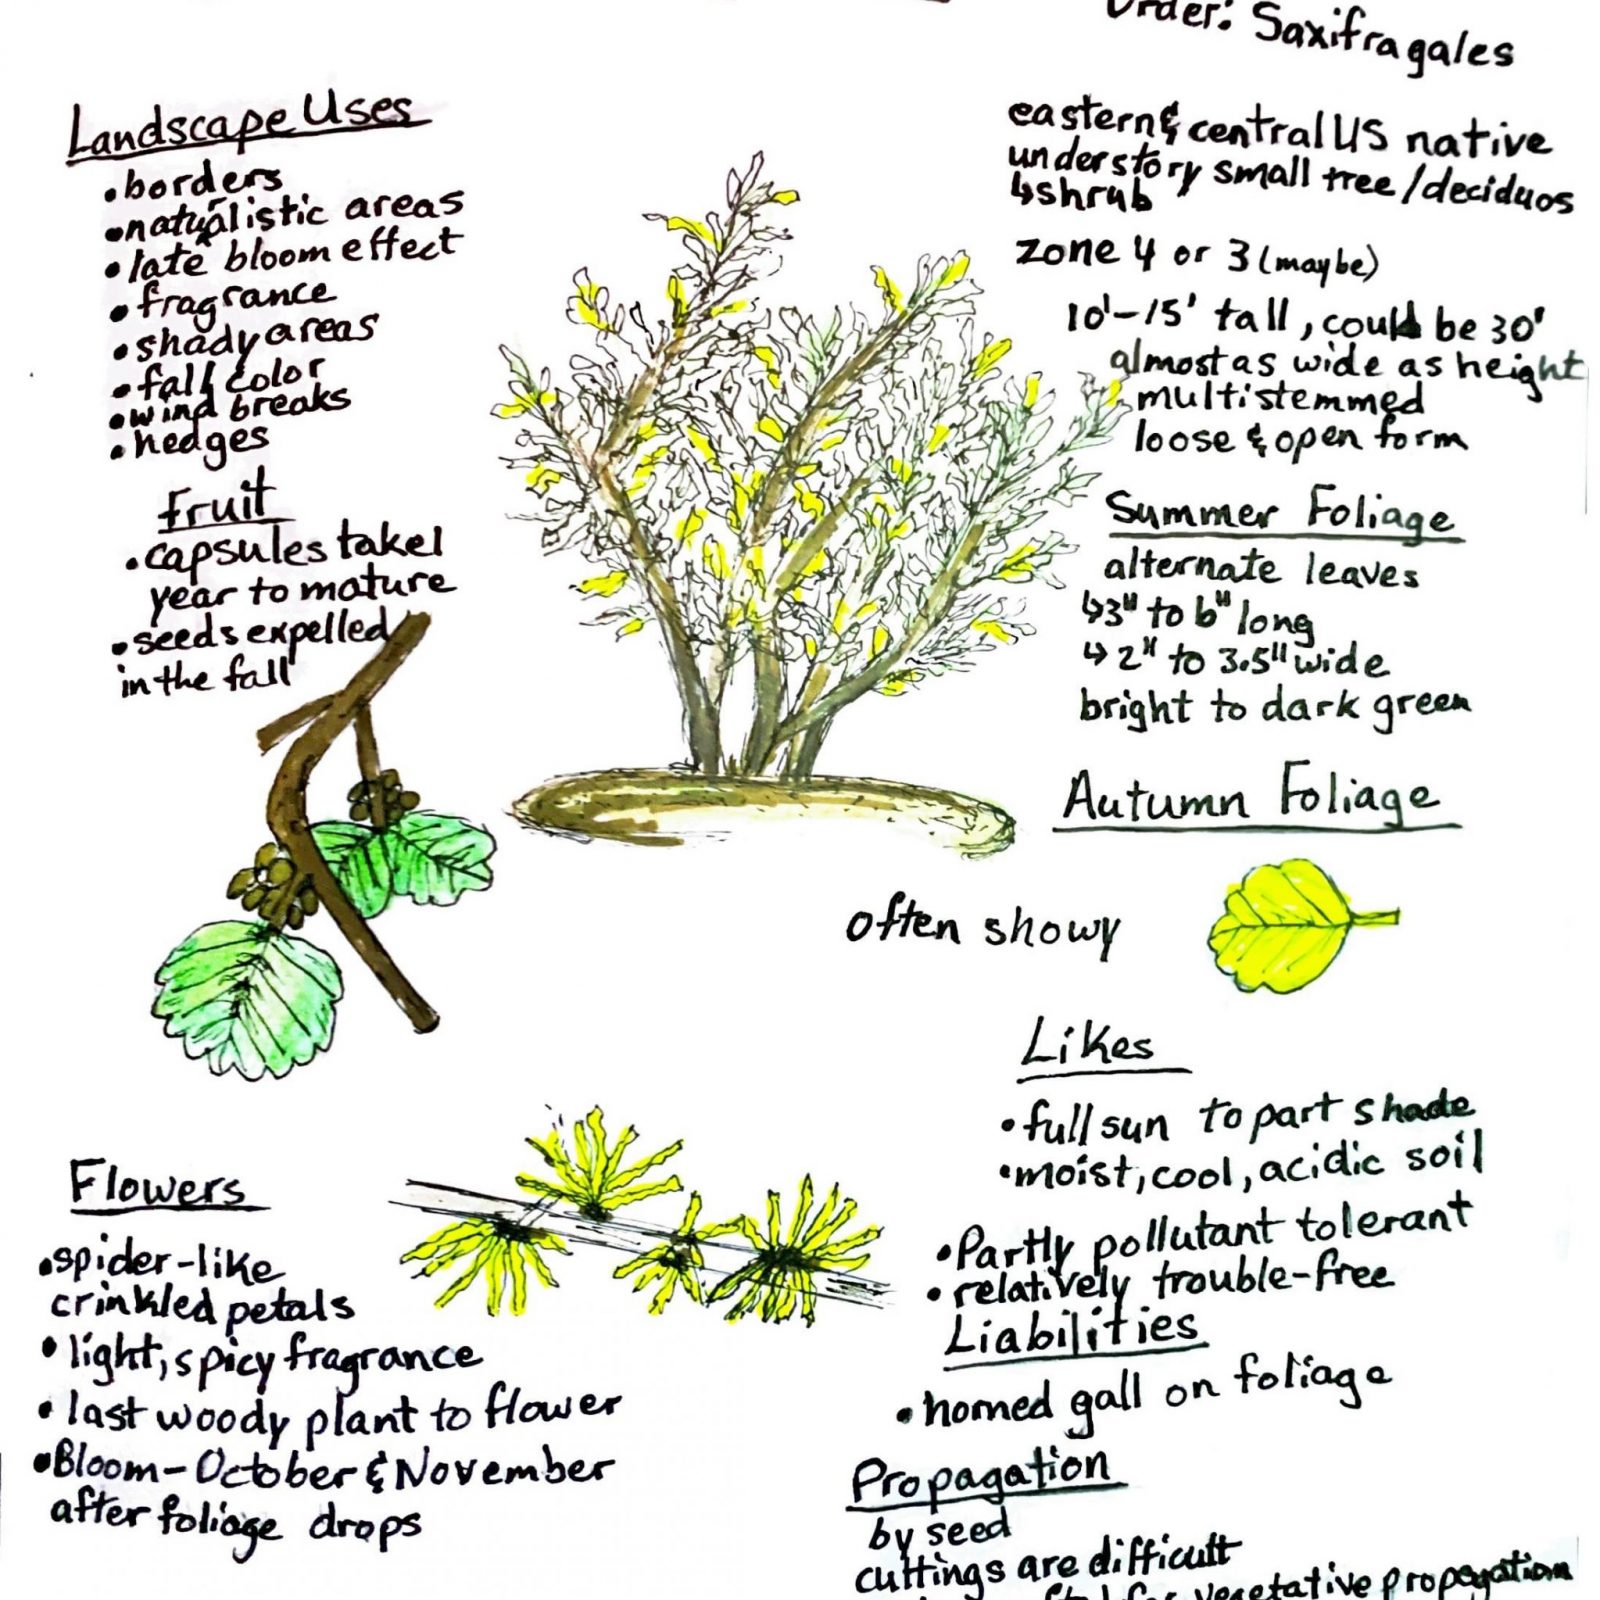 Order: Saxifragales
Landscape Uses
• borders
• naturalistic areas
• late bloom effect
• fragrance
• shady areas
• fall color
• wind breaks
• hedges
Fruit
• capsules take 1
year to mature
• seeds expelled
in the fall
eastern & central US native
understory small tree/deciduos
↳shrub
zone 4 or 3 (maybe)
10'-15' tall, could be 30'
almost as wide as height
multistemmed
loose & open form
Summer Foliage
alternate leaves
↳3" to 6" long
↳2" to 3.5" wide
bright to dark green
Autumn Foliage
often showy
Likes
• full sun to part shade
• moist, cool, acidic soil
• Partly pollutant tolerant
• relatively trouble-free
Liabilities
• horned gall on foliage
Propagation
by seed
cuttings are difficult
for vegetative propagation
Flowers
• spider-like
crinkled petals
• light, spicy fragrance
• last woody plant to flower
• Bloom - October & November
after foliage drops